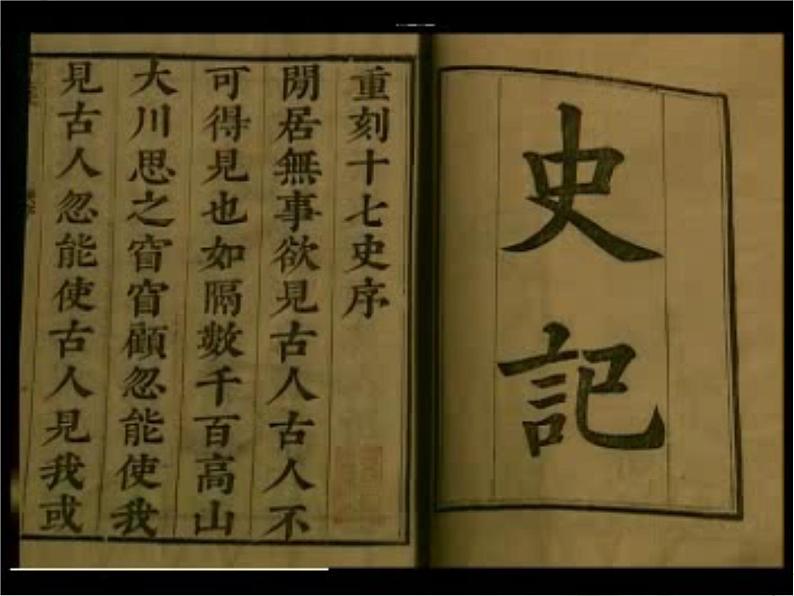 史記
重刻十七史序
閒居無事欲見古人古人不
可得見也如隔數千百高山
大川思之窅窅顧忽能使我
見古人忽能使古人見我或